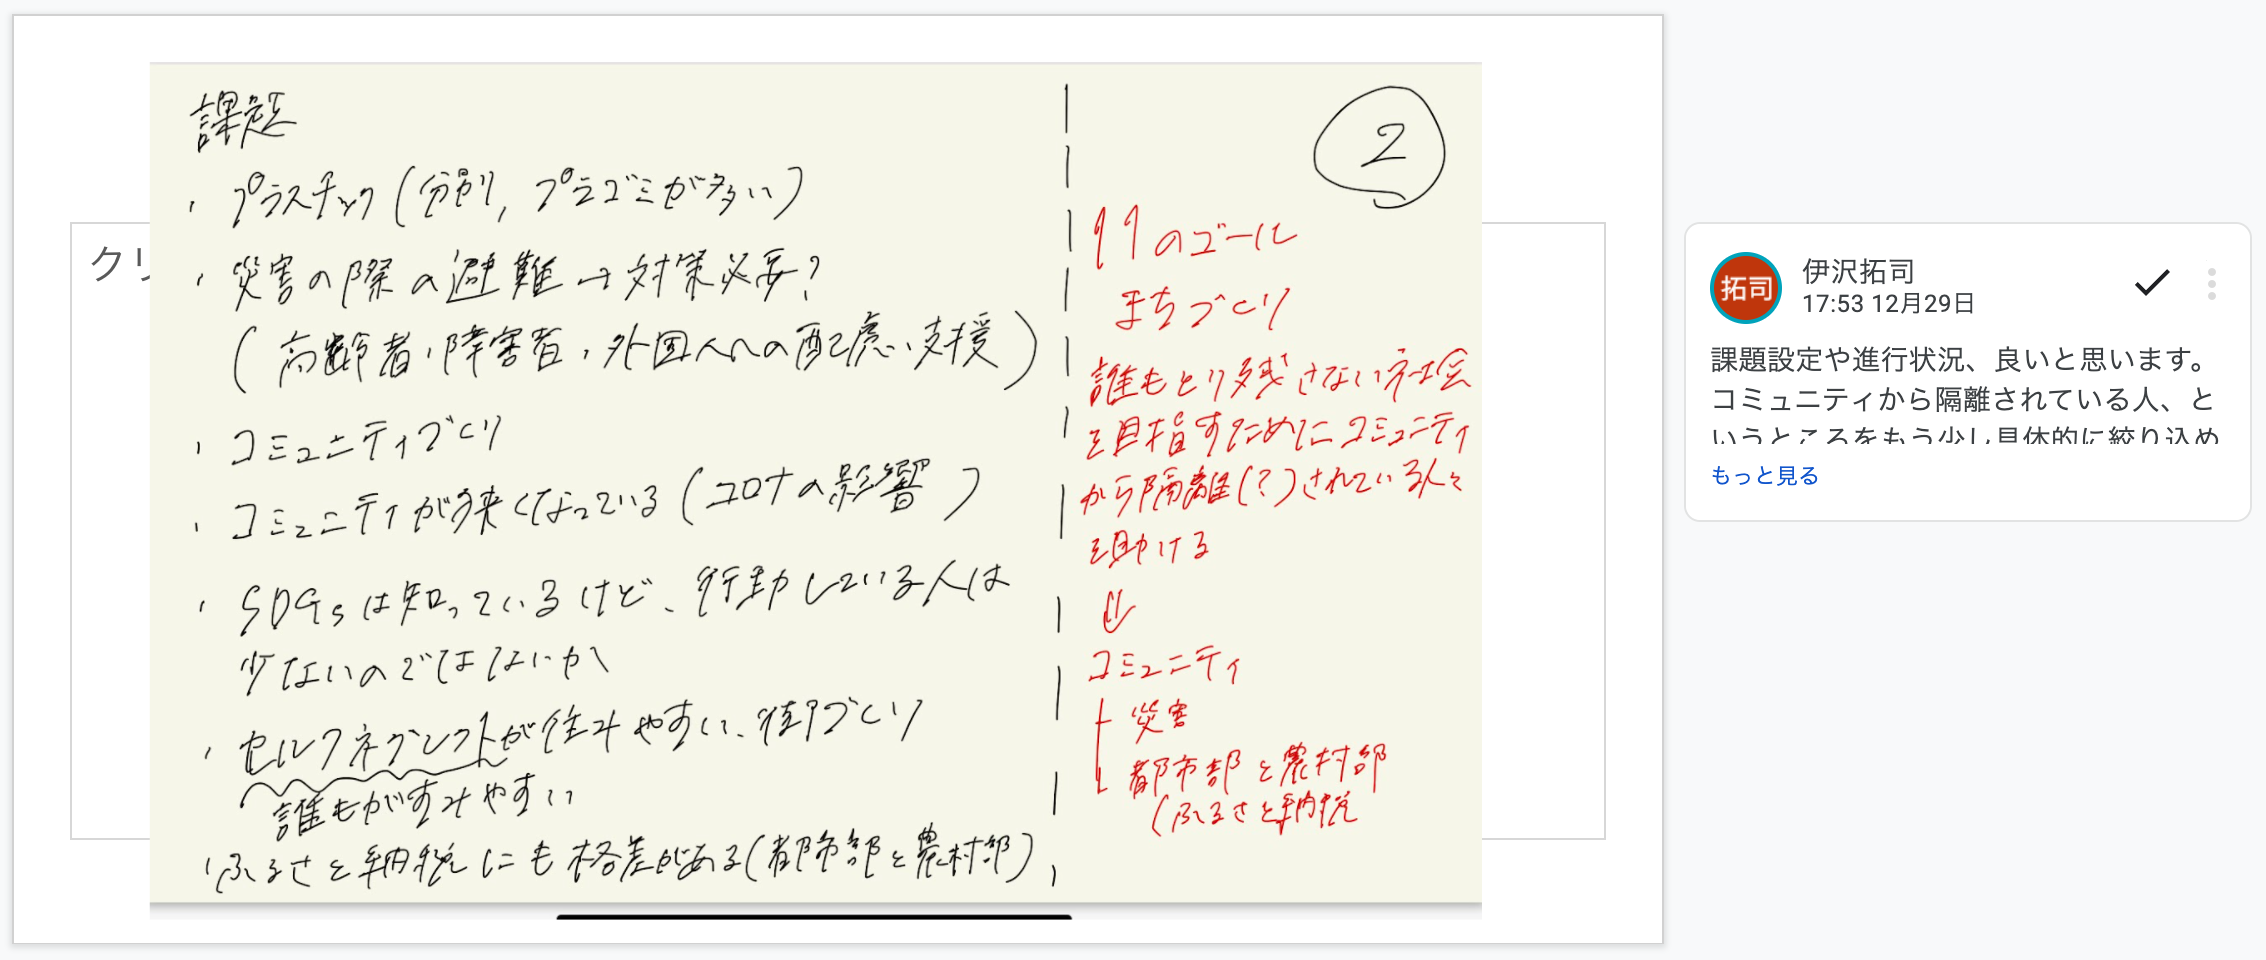 課題
・プラスチック(分別, プラゴミが多い)
・災害の際の避難→対策必要?
(高齢者・障害者・外国人への配慮・支援)
・コミュニティづくり
・コミュニティが狭くなっている(コロナの影響)
・SDGsは知っているけど、行動している人は
少ないのではないか
・セルフネグレクトが住みやすい、街づくり
誰もがすみやすい
・ふるさと納税にも格差がある(都市部と農村部)
2
11のゴール
まちづくり
誰もとり残さない社会
を目指すためにコミュニティ
から隔離(?)されている人々
を助ける
⇓
コミュニティ
災害
都市部と農村部
(ふるさと納税
クリ
拓司
伊沢拓司
17:53 12月29日
課題設定や進行状況、良いと思います。
コミュニティから隔離されている人、と
いうところをもう少し具体的に絞り込め
もっと見る